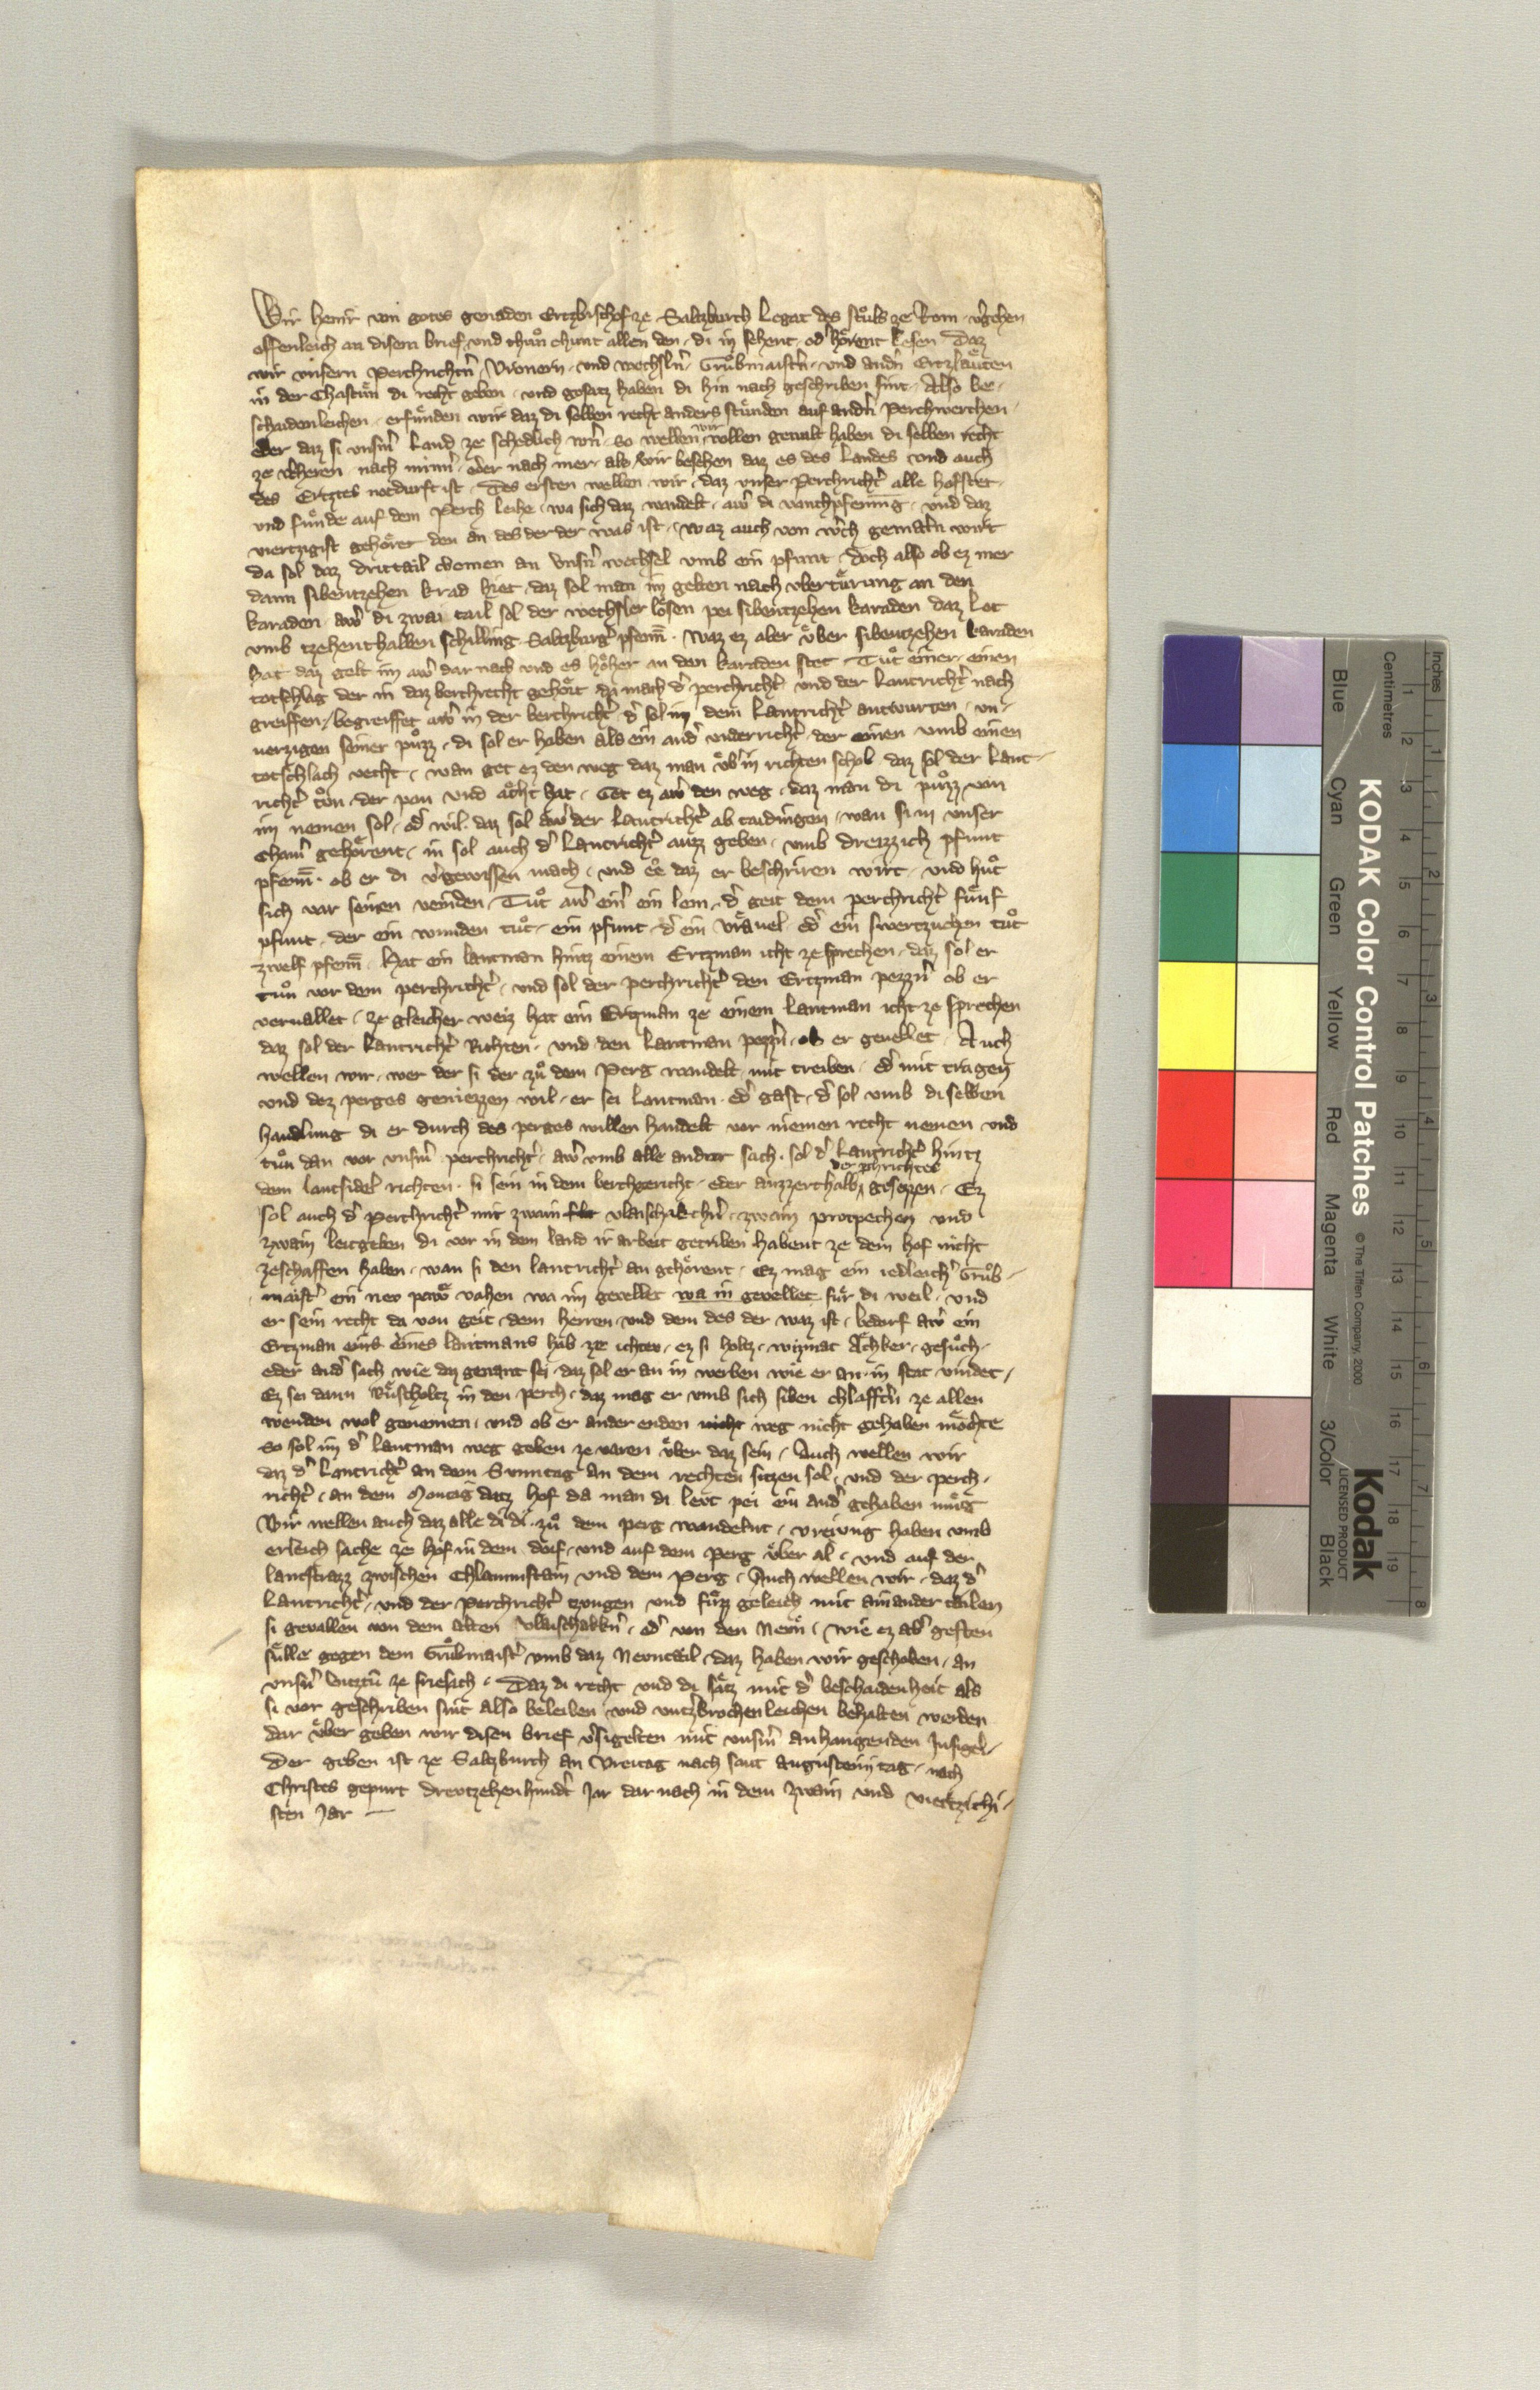 Wir Heinr von gotes genaden Ertzbischof ze Saltzburch Legat des stuͦls ze Rom v̾gehen
offenleich an disem brief und chuͦn chunt allen den, di in sehent, od̾ hoͤrent lesen Daz
wir unsern Perchrichtn̾, Vronern, und wechsln̾, Gruͦbmaistn̾, und andn̾ Ertzlaͤuten
in der Chastuͤn di recht geben, und gesatz haben di hin nach geschriben sint, Also be-
schaidenleichen, erfuͤnden wir daz di selben recht anders stuͤnden auf andn̾ Perchwerchen,
Oder daz si unsm̾ Land ze schedlich wn̾, so wellen wir vollen gewalt haben di selben recht
ze cheren, nach minn̾, oder nach mer, als wir besehen daz es des Landes und auch
des Ertztes notdurft ist, Des ersten wellen wir, daz unser Perchricht̾ alle hofstet,
und fuͤnde auf dem Perch leihe, wa sich daz wandelt, aw̾ di vanchpfenning, und daz
viertzigist gehoͤret den an des der der was ist, Waz auch von w̾ch gemaln wirt
da sol daz drittail chomen an Unsn̾ wechsel umb ein pfunt, doch also ob ez mer
dann sibentzehen krad hiet, daz sol man im gelten nach ubertuͤrung an den
karaden, aw̾ di zwai tail sol der wechsler loͤsen pei sibentzehen karaden daz Lot
umb tzehenthalben schilling Saltzburg̾ pfenn̄. Waz ez aber uͤber sibentzehen karaden
hat daz gelt im aw̾ dar nach und es hoͤher an den karaden stet, Tuͦt einer, einen
totschlag der in daz berchrecht gehoͤrt da mach d̾ perchricht̾ und der Lantricht̾ nach
greiffen, begreiffet aw̾ in der berchricht̾ d̾ sol in dem Lantricht̾ antwurten, un-
uerzigen seiner puͦzz, di sol er haben als ein and̾ underricht̾ der einen umb einen
totschlach vecht, wan get ez den weg daz man uͤb̾ in richten schol daz sol der Lant-
richt̾ tuͦn, der pan und aͤcht hat, Get ez aw̾ den weg, daz man di puͦzz von
im nemen sol, od̾ wil, daz sol aw̾ der Lantricht̾ ab taidingen, wan si in unser
cham̾ gehoͤrent, in sol auch d̾ Lantricht̾ auzz geben, umb dreizzich pfunt
pfenn̄. ob er di v̾gewissen mach, und ee daz er beschriren wirt, und huͦt
sich var seinen veinden, Tuͦt aw̾ ein̾ ein lem, d̾ geit dem perchricht̾ fuͤnf
pfunt, der ein wunden tuͦt, ein pfunt, d̾ ein vraͤuel, od̾ ein swertzuchen tuͦt
zwelf pfenn̄. Hat ein lantman hintz einem Ertzman icht ze sprechen, daz sol er
tuͦn vor dem perchricht̾, und sol der perchricht̾ den Ertzman pezzn̾ ob er
veruallet, ze gleicher weiz hat ein Ertzman ze einem Lantman icht ze sprechen
daz sol der Lantricht̾ Richten, und den Lantman pezzn̾, ob er geuellet, Auch
wellen wir, wer der si der zuͦ dem Perg wandelt, mit treiben, od̾ mit tragen
und dez perges geniezzen wil, er sei Lantman, od̾ gast, d̾ sol umb di selben
handlung di er durch des perges willen handelt vor niemen recht nemen und
tuͦn dan vor unsm̾ perchricht̾, aw̾ umb alle ander sach, sol d̾ Lantricht̾ hintz
dem lantsidel richten, si sein in dem berchgericht, oder auzzerthalb der phrichtes gesezzen, Ez
sol auch d̾ Perchricht̾ mit zwain vlaischakchn̾, zwain protpechen und
zwain leitgeben di vor in dem land ir arbeit getriben habent ze dem hof nicht
zeschaffen haben, wan si den lantricht̾ an gehoͤrent, Ez mag ein iedleich̾ Gruͦb-
maist̾ ein nev paw̾ vahen wa im geuellet wa in geuellet fuͤr di weil, und
er sein recht da von geit, dem herren, und dem des der waz ist, bedarf aw̾ ein
Ertzman eins eines lantmans hab ze ichtev, ez si holtz, wizmat Aͤchker, gesuͦch,
oder and̾ sach wie daz genant sei, daz sol er an in werben wie er an in stat vindet,
Ez sei dann Ruͤstholtz in den perch, daz mag er umb sich siben chlaftn̾ ze allen
wenden wol genemen, und ob er ander enden nicht weg nicht gehaben moͤchte
so sol im d̾ lantman weg geben ze varen uͤber daz sein, Auch wellen wir
daz d̾ Lantricht̾ an dem Sunntag an dem rechten sitzen sol, und der perch-
richt̾, an dem Montag datz hof da man di levt pei ein and̾ gehaben muͤg
Wir wellen auch daz alle di di zuͦ dem perg wandelnt, vreiung haben umb
erleich sache ze hof in dem dorf, und auf dem Perg uͤber al, und auf der
lantstrazz zwischen Chlammstain und dem Perg, Auch wellen wir, daz d̾
Lantricht̾, und der Perchricht̾ tzungen und fuͤzz geleich mit ainander tailen
si geuallen von dem alten Vlaischakkn̾, od̾ von den Nevn̾, wie ez ab̾ gesten
suͤlle gegen dem Gruͦbmaist̾ umb daz Nevntail, daz haben wir geschoben, an
unsn̾ Vitztū ze friesach, Daz di recht und di saͤtz mit d̾ beschaidenheit als
si vor geschriben sint also beleiben, und untzbrochenleichen behalten werden
dar uͤber geben wir disen brief v̾sigelten mit unsm̾ anhangenden Insigel,
Der geben ist ze Saltzburch an Vreitag nach sant augusteins tag, nach
Christes gepurt drevtzehenhund̾t Jar dar nach in dem zwain und viertzichi-
sten Jar
KODAK Color Control Patches © The Tiffen Company, 2000
Kodak
LICENSED PRODUCT
Blue Cyan Green Yellow Red Magenta White 3/Color Black
Inches 1 2 3 4 5 6 7 8
Centimetres 1 2 3 4 5 6 7 8 9 10 11 12 13 14 15 16 17 18 19